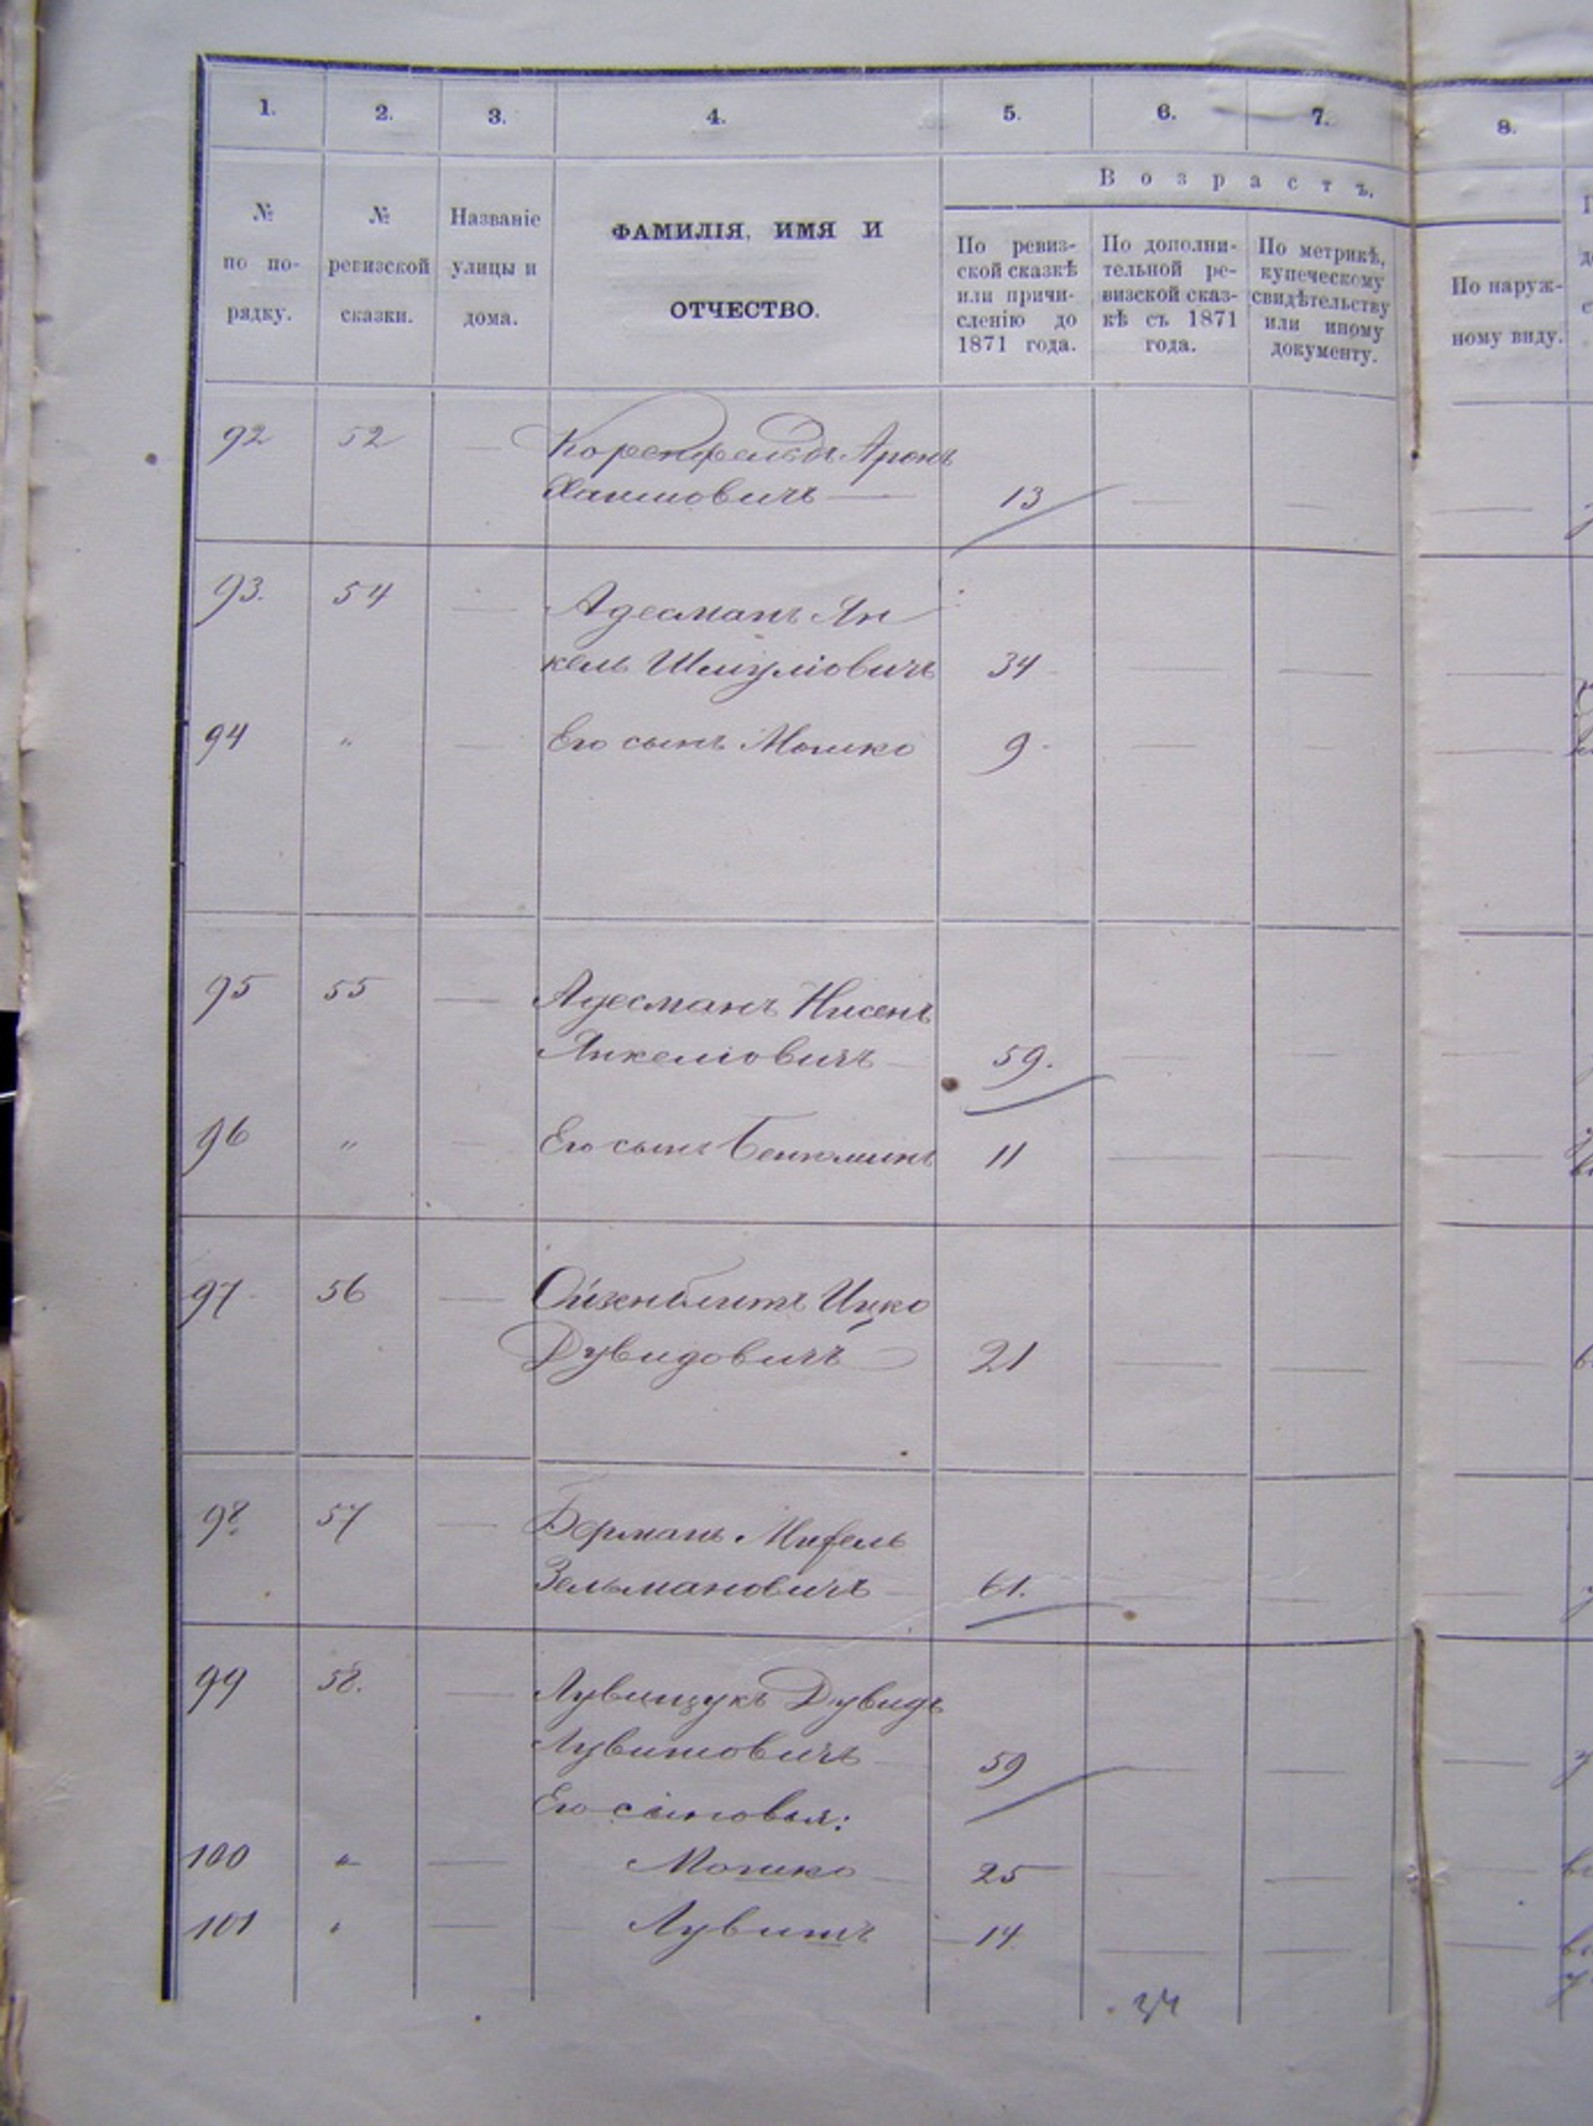 1. 2. 3. 4. 5. 6. 7. 8.
В о з р а с т ъ.
№ по по-рядку.
№ ревизской сказки.
Названіе улицы и дома.
ФАМИЛІЯ, ИМЯ И
ОТЧЕСТВО.
По ревиз-
ской сказкѣ
или причи-
сленію до
1871 года.
По дополни-
тельной ре-
визской сказ-
кѣ съ 1871
года.
По метрикѣ,
купеческому
свидѣтельству
или иному
документу.
По наруж-
ному виду.
92 52 — Коренфельдъ Аронъ
Хаимовичъ — 13 — —
93. 54 — Адесманъ Ян
кель Шмулiовичъ 34 — —
94 " — Его сынъ Мошко 9 — —
95 55 — Адесманъ Нисенъ
Янкелiовичъ — 59. —
96 " — Его сынъ Бениоминъ 11 — —
97 56 — Ойзенблитъ Ицко
Дувидовичъ — 21 — —
98 57 — Берманъ
Зельмановичъ — 61.
99 58. — Лувищукъ Дувидъ
Лувитовичъ — 59 — —
Его сыновья:
100 " — Мошко — 25 — —
101 " — Лувитъ — 14. — —
34